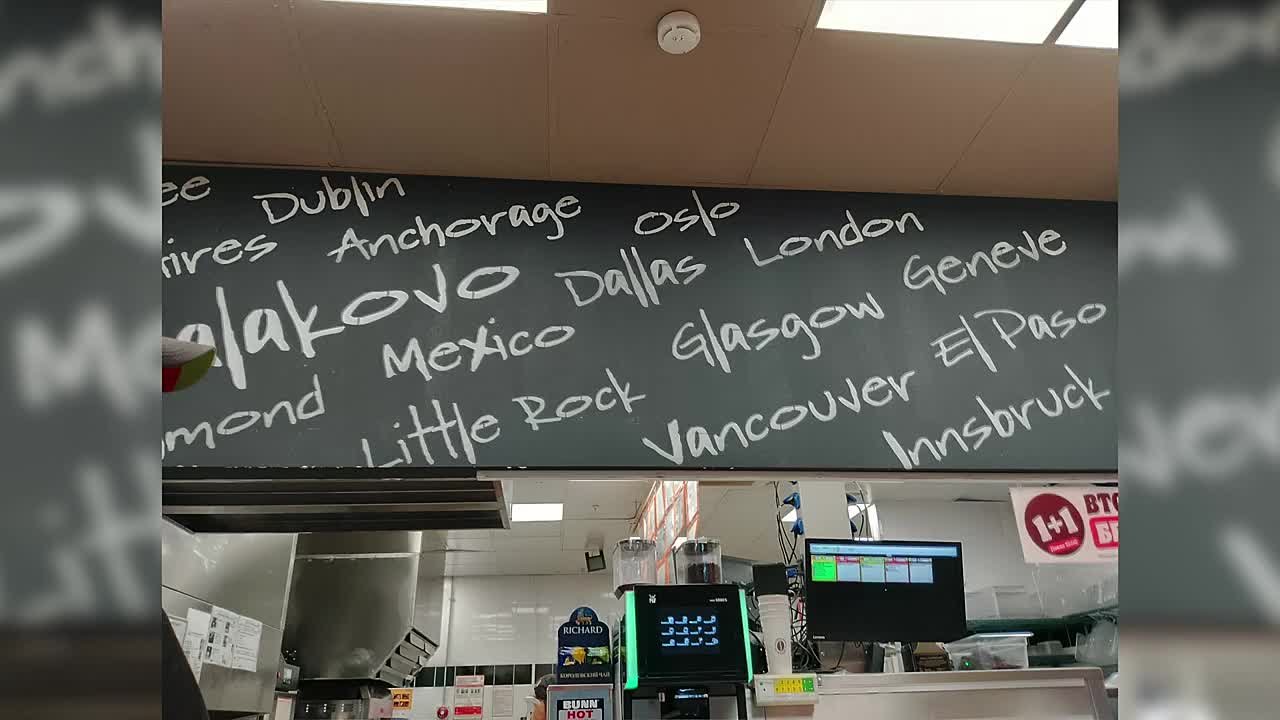 ee Dublin
ires Anchorage Oslo
alakovo Dallas London
Mexico Glasgow Geneve
mond Little Rock Vancouver El Paso
Innsbruck
1+1
RICHARD
КОРОЛЕВСКИЙ ЧАЙ
BUNN
HOT
WMF